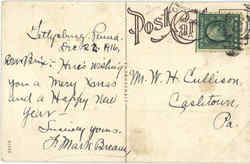 Post Card
Gettysburg, Penna.
Dec 22, 1916,
Here's wishing
you a Merry Xmas
and a Happy New
Year—
Sincerely yours,
Mark
Mr. W. H. Cullison,
Pa.